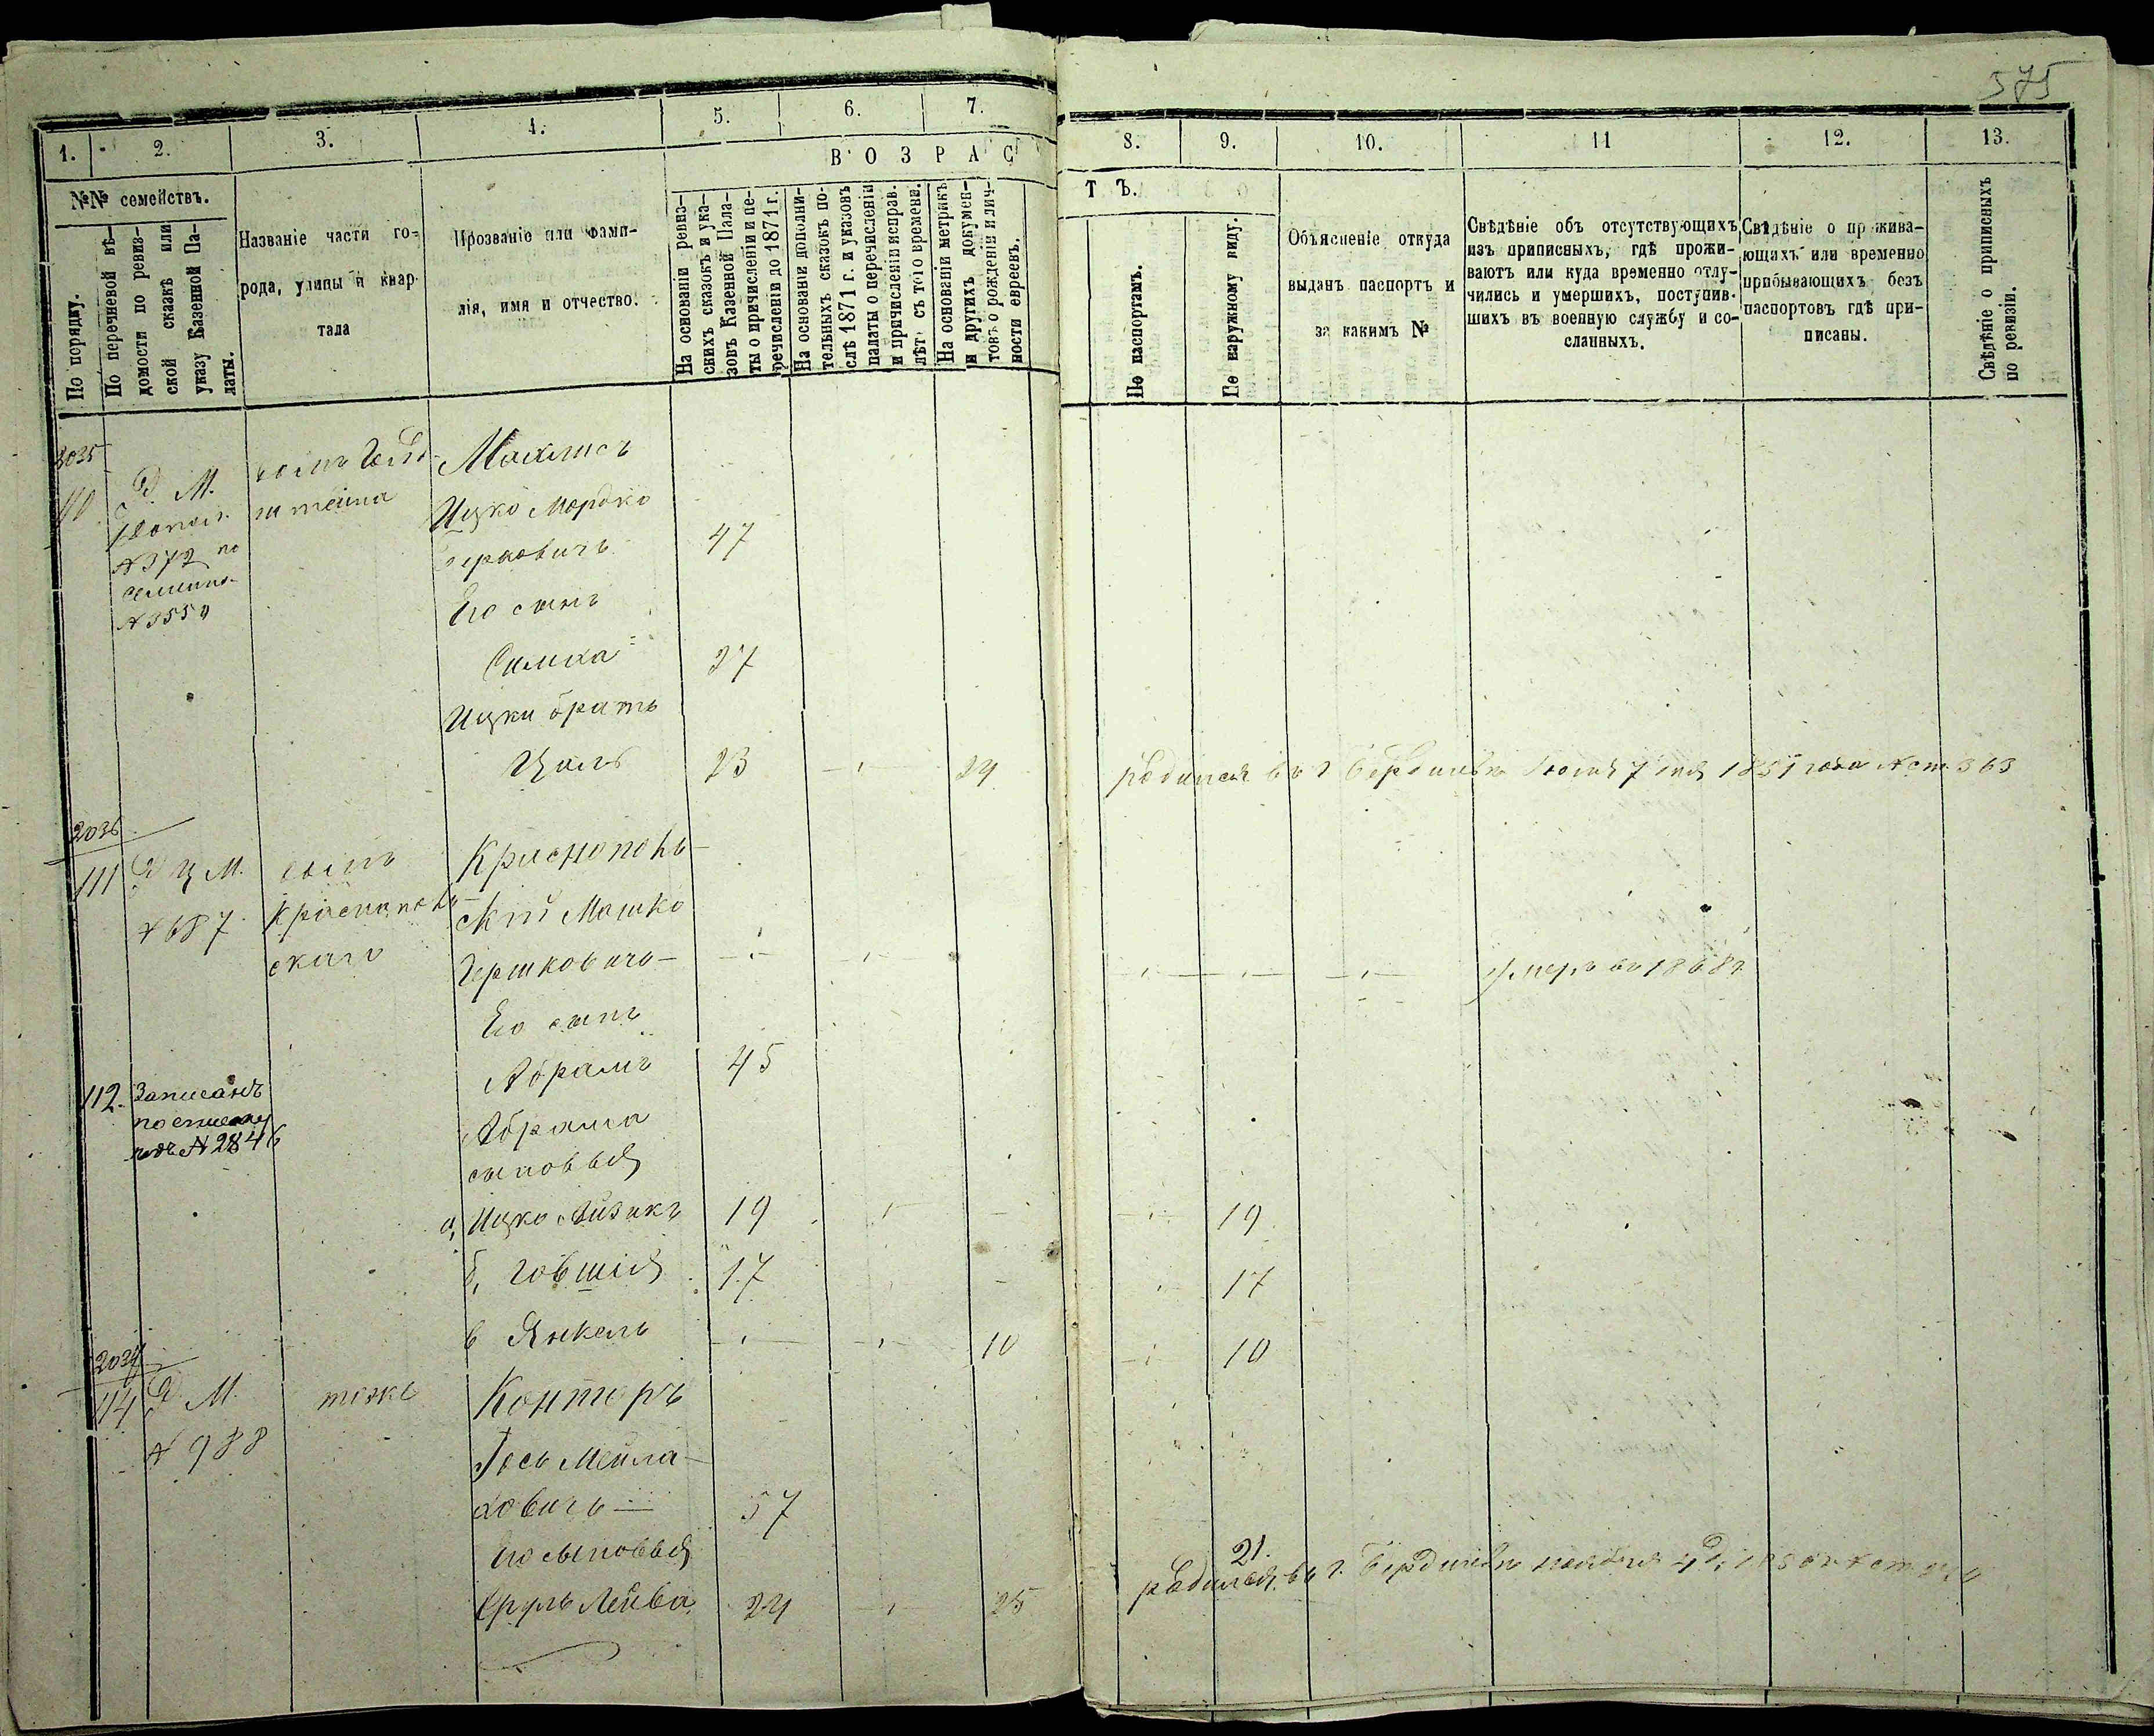 375
1. 2. 3. 4. 5. 6. 7.
8. 9. 10. 11 12. 13.
ВОЗРАС
ТЪ.
№№ семействъ.
По порядку.
По перечневой вѣ-
домости по ревиз-
ской сказкѣ или
указу Казенной Па-
латы.
Названіе части го-
рода, улицы и квар-
тала
Прозваніе или фами-
лія, имя и отчество.
На основаніи ревиз-
скихъ сказокъ и ука-
зовъ Казенной Пала-
ты о причисленіи и пе-
речисленіи до 1871 г.
На основаніи дополни-
тельныхъ сказокъ по-
слѣ 1871 г. и указовъ
палаты о перечисленіи
и причисленіи исправ.
лѣт. съ того времени.
На основаніи метрикъ
и другихъ докумен-
товъ о рожденіи и лич-
ности евреевъ.
По паспортамъ.
По наружному виду.
Объясненіе откуда
выданъ паспортъ и
за какимъ №
Свѣдѣніе объ отсутствующихъ
изъ приписныхъ, гдѣ прожи-
ваютъ или куда временно отлу-
чились и умершихъ, поступив-
шихъ въ военную службу и со-
сланныхъ.
Свѣдѣніе о прожива-
ющихъ или временно
прибывающихъ безъ
паспортовъ гдѣ при-
писаны.
Свѣдѣніе о приписныхъ
по ревизіи.
2035
110. М.
№ 372 по
№ 3554
штейна
Махлисъ
Ицко Мордко
Берковичъ 47
Его сынъ
Симха 27
Ицки братъ
Цаль 23 24 родился въ г. Бердичевѣ Іюля 7 дня 1851 года № ст. 363
2036
111 М.
№ 687
Краснополь-
скаго
Краснополь-
скій Мошко
Гершковичъ — умеръ въ 1868 г.
Его сынъ
Абрамъ 45
112. Записанъ
по списку
№ 2846
Абрама
сыновья
а, Ицко Айзикъ 19 19
б, Говшія 17 17
в Янкель 10 10
2037
114 М. тоже
№ 988
Канторъ
Іось Мейла-
ховичъ — 57
Его сыновья
Сруль Лейба 24 25
21.
родился въ г. Бердичевѣ ноября